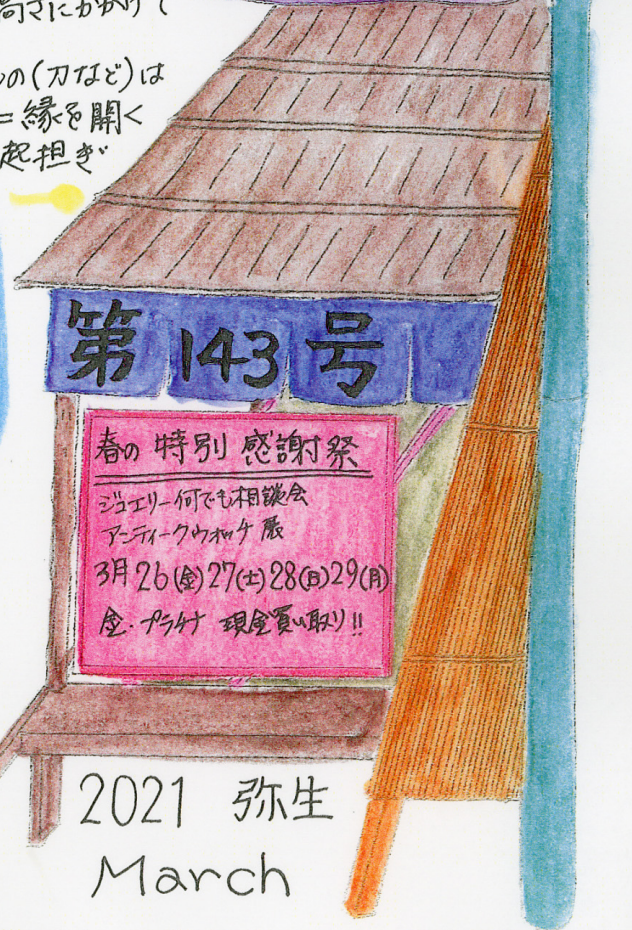 高さにかかげて
の(刀など)は
=縁を開く
起担ぎ
第143号
春の特別感謝祭
ジュエリー何でも相談会
アンティークウォッチ展
3月26(金)27(土)28(日)29(月)
金・プラチナ 現金買い取り!!
2021 弥生
March